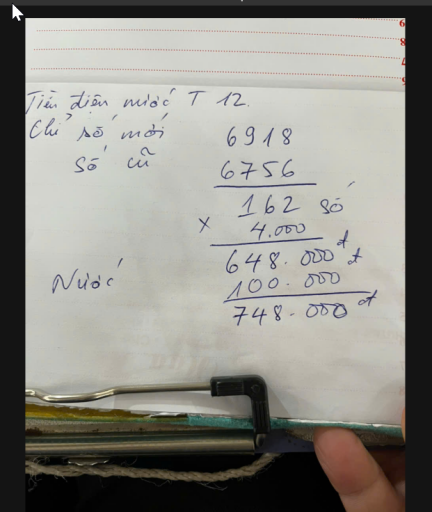 Tiền điện nước T 12.
Chỉ số mới 6918
Số cũ 6756
162 số
x 4.000
648.000đ
Nước 100.000đ
748.000đ